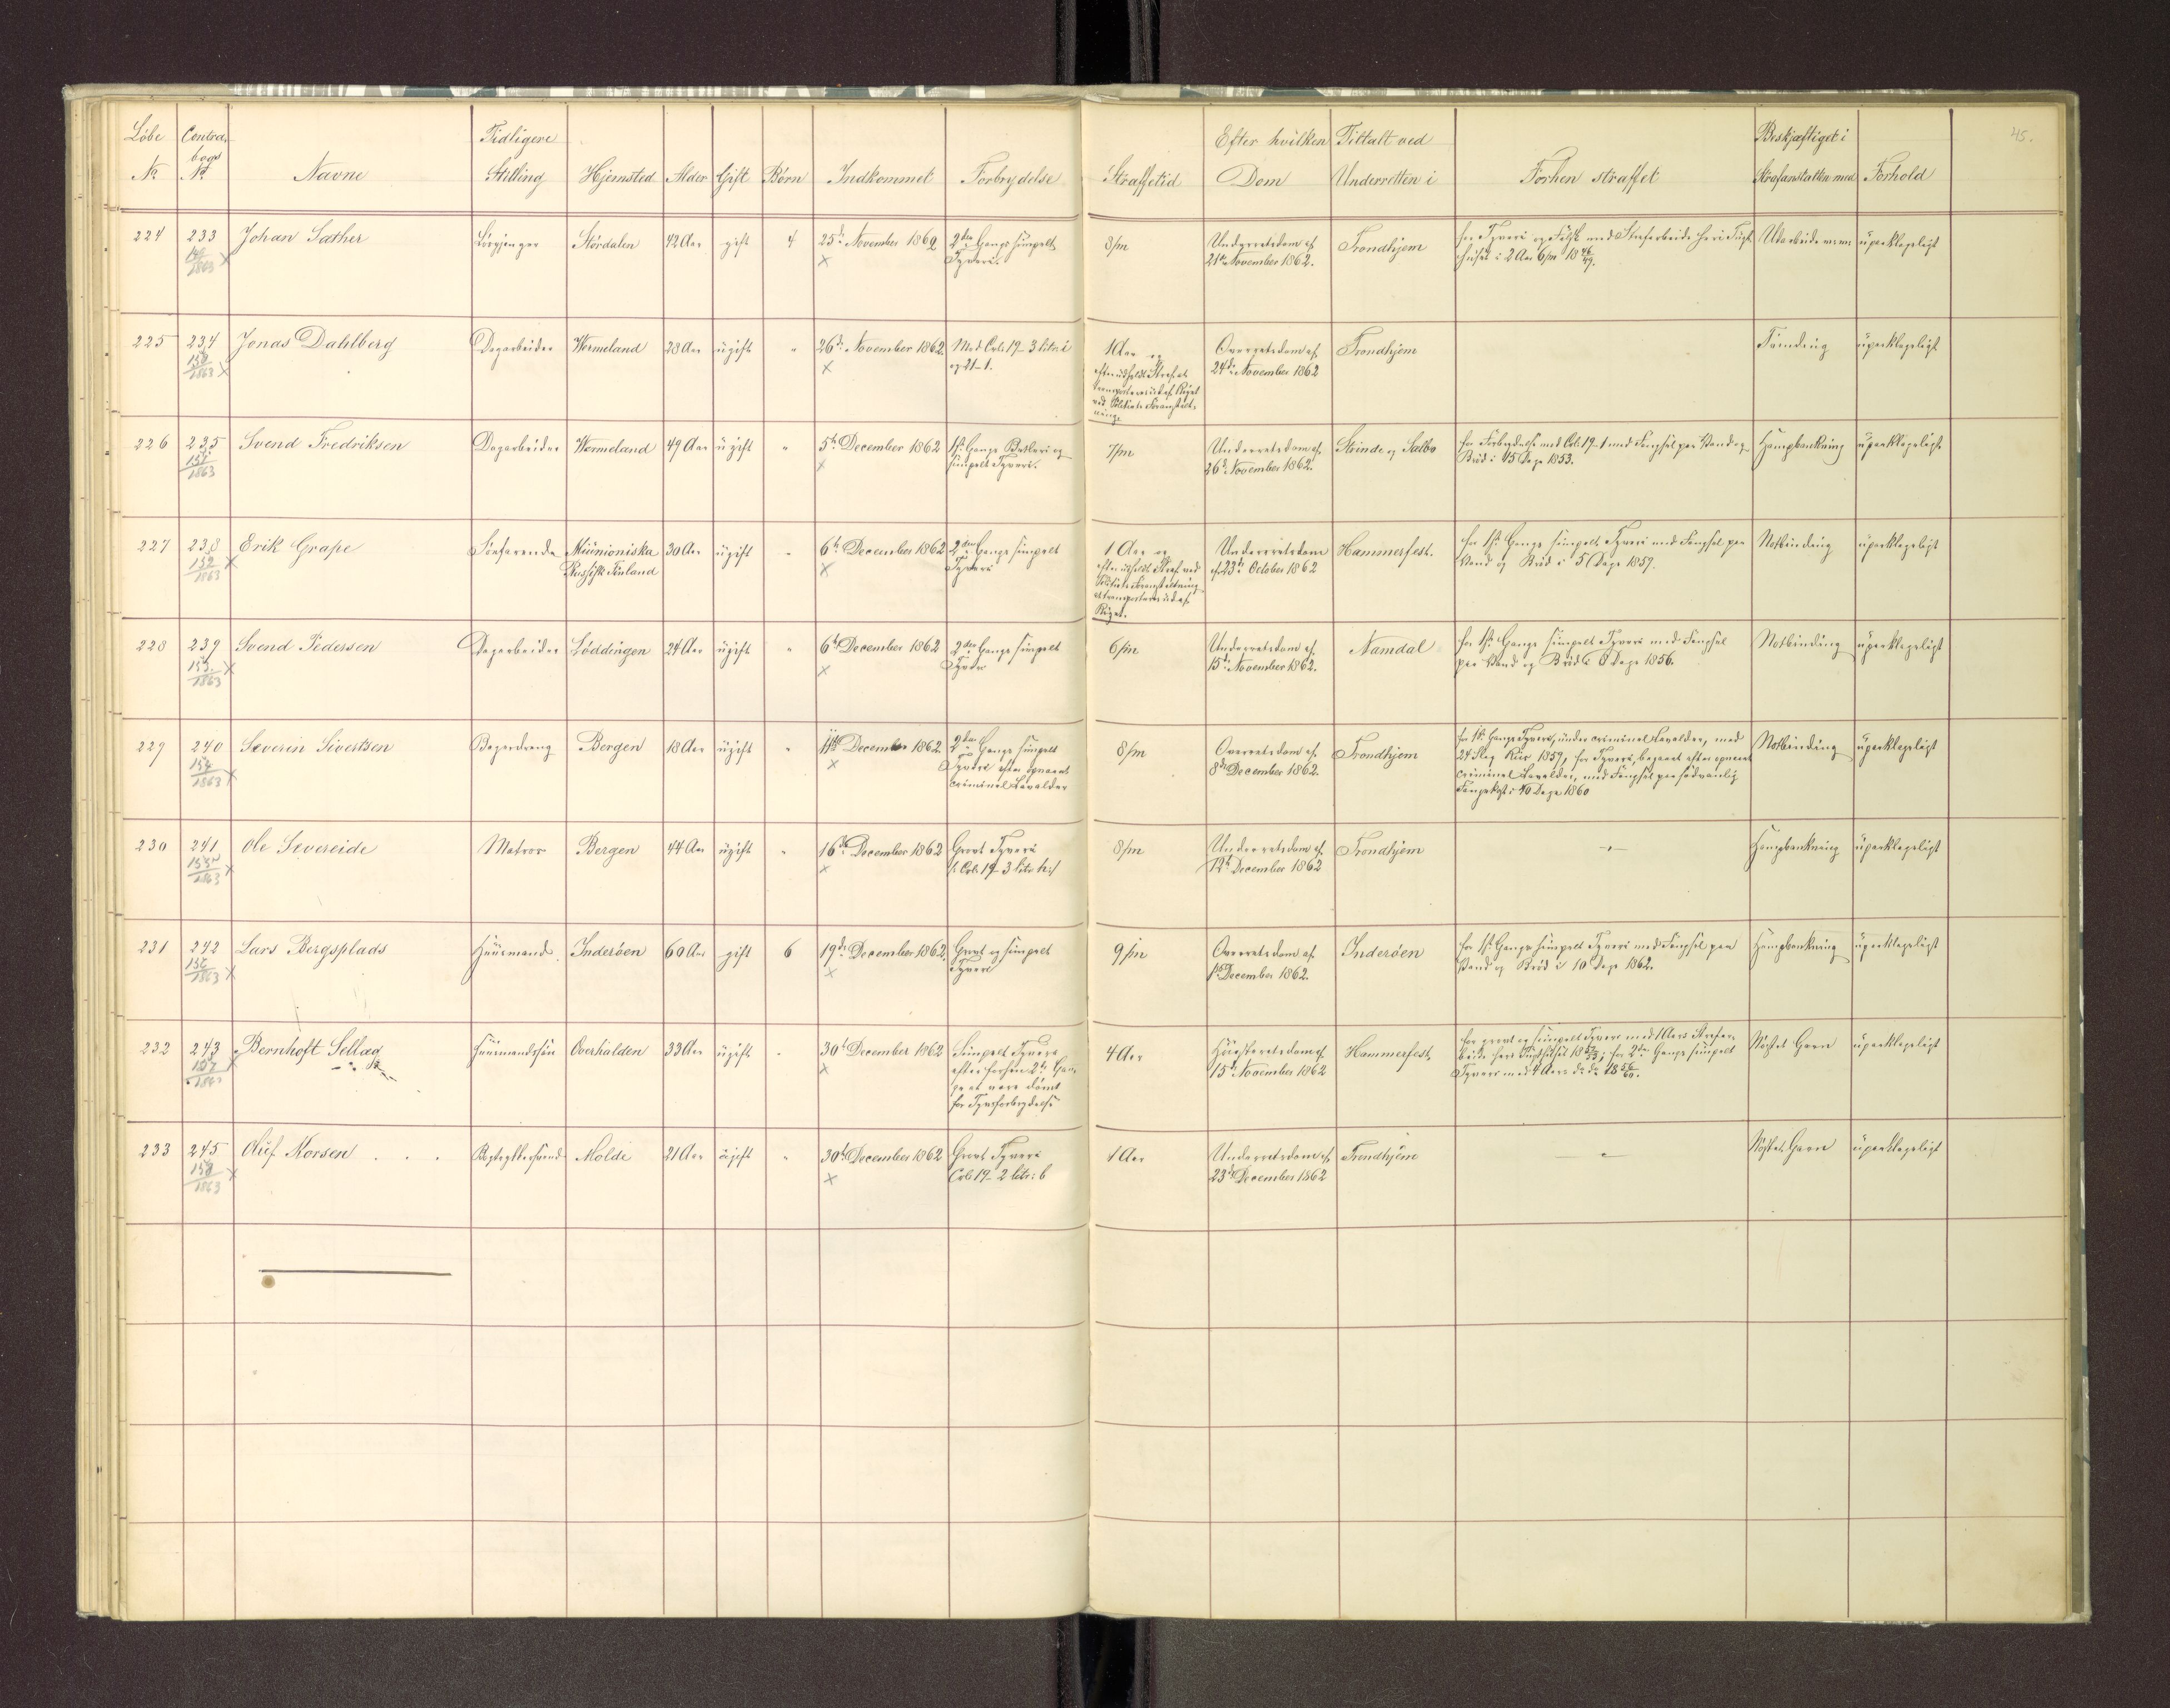 45.
Löbe No Contrabogs No Navne Tidligere Stilling Hjemsted Alder Gift Börn Indkommet Forbrydelse Straffetid Efter hvilken Dom Tiltalt ved Underretten i Forhen straffet Beskjæftiget i Strafanstalten med Forhold
224 233 Johan Sæther Stördalen 42 Aar gift 4 25de November 1862 2den Gangs simpelt Tyveri. 8/m Underretsdom af 21de November 1862. Trondhjem for Tyveri og Falsk med Strafarbeide her i Tugthuset i 2 Aar 6/m 18 46/49. Udarbeide upaaklageligt
149/1863 X
225 234 Jonas Dahlberg Dagarbeider Wermeland 28 Aar ugift " 26de November 1862 Mod Crl: 19-3 litr: i og 21-1. 1 Aar og efter udholdt Straf at transporteres ud af Riget ved Politiets Foranstaltning. Overretsdom af 24de November 1862 Trondhjem upaaklageligt
1863 X
226 235 Svend Fredriksen Dagarbeider Wermeland 49 Aar ugift " 5te December 1862 1ste Gangs Betleri og simpelt Tyveri. 7/m Underretsdom af 26de November 1862. Strinde og Sælbo for Forbrydelse mod Crl: 19-1 med Fængsel paa Vand og Bröd i 15 Dage 1853. Hampbankning upaaklageligt
1863
227 238 Erik Grape Söefarende Muonioniska Russisk Finland 30 Aar ugift " 6te December 1862 2den Gangs simpelt Tyveri 1 Aar og efter udholdt Straf ved Politiets Foranstaltning at transporteres ud af Riget. Underretsdom af 23de October 1862 Hammerfest. for 1ste Gangs simpelt Tyveri med Fængsel paa Vand og Bröd i 5 Dage 1857. Notbinding upaaklageligt
152/1863 X
228 239 Svend Pedersen Dagarbeider Löddingen 24 Aar ugift " 6te December 1862 2den Gangs simpelt Tyveri 6/m Underretsdom af 15de November 1862. Namdal for 1ste Gangs simpelt Tyveri med Fængsel paa Vand og Bröd i 8 Dage 1856. Notbinding upaaklageligt
153/1863 X
229 240 Severin Sivertsen Bagerdreng Bergen 18 Aar ugift " 11te December 1862 2den Gangs simpelt Tyveri efter opnaaet criminel Lavalder 8/m Overretsdom af 8de December 1862. Trondhjem for 1ste Gangs Tyveri, under criminel Lavalder, med 24 Slag Riis 1859, for Tyveri, begaaet efter opnaaet criminel Lavalder, med Fængsel paa sædvanlig Fangekost i 40 Dage 1860 Notbinding upaaklageligt
154/1863 X
230 241 Ole Severeide Matros Bergen 44 Aar ugift " 16de December 1862 Grovt Tyveri /: Crl: 19-3 litr: h:/ 8/m Underretsdom af 12te December 1862 Trondhjem — " — Hampbankning upaaklageligt
155/1863 X
231 242 Lars Bergsplads Huusmand Inderöen 60 Aar gift 6 19de December 1862. Grovt og simpelt Tyveri 9/m Overretsdom af 15 December 1862. Inderöen for 1ste Gangs simpelt Tyveri med Fængsel paa Vand og Bröd i 10 Dage 1862. Hampbankning upaaklageligt
156/1863 X
232 243 Bernhoft Sellæg Huusmandssön Overhalden 33 Aar ugift " 30te December 1862 Simpelt Tyveri efter forhen 2de Gange at være dömt for Tyvsforbrydelse 4 Aar Höiesteretsdom af 15de November 1862 Hammerfest for grovt og simpelt Tyveri med 1 Aars Strafarbeide her i Tugthuset; for 2den Gangs simpelt Tyveri med 4 Aars do do 18 56/60. Garn upaaklageligt
157/1863 X
233 245 Oluf Korsen 21 Aar ugift " Molde 30te December 1862 Grovt Tyveri Crl: 19-2 litr: b 1 Aar Underretsdom af 23de December 1862 Trondhjem — " — Garn upaaklageligt
158/1863 X